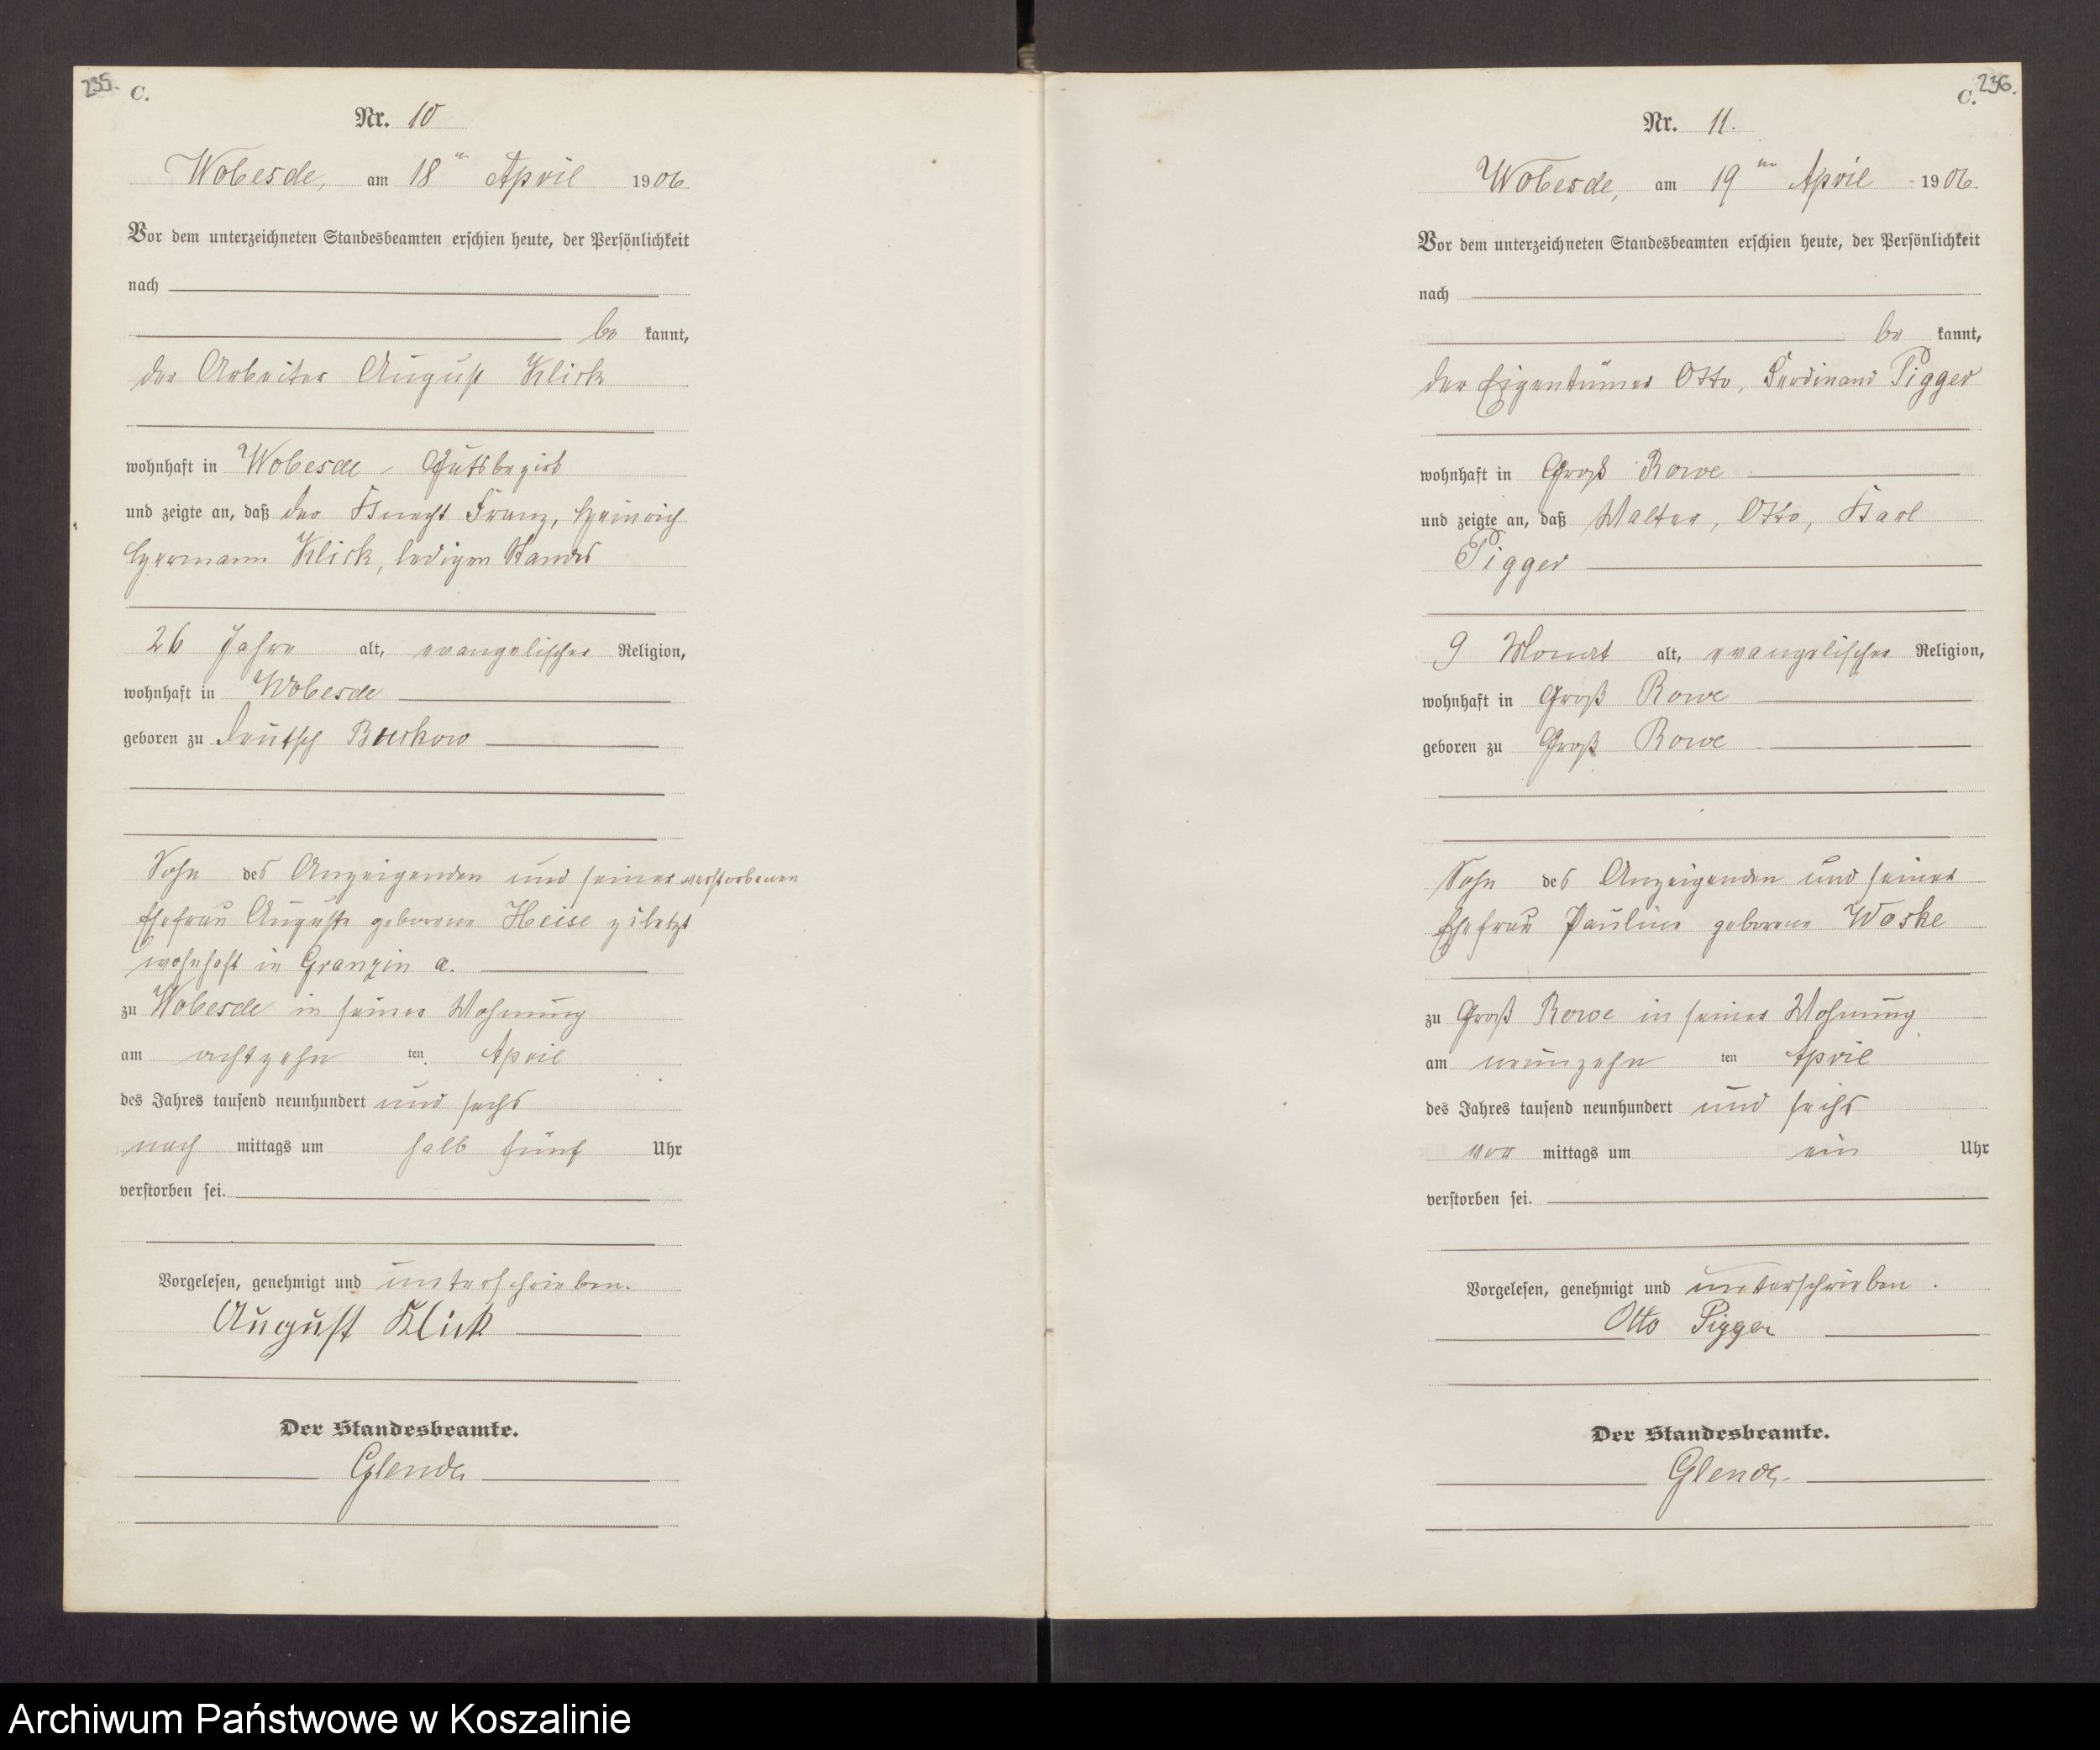 235.
C.
Nr. 10
Wobesde, am 18ten April 1906.
Vor dem unterzeichneten Standesbeamten erschien heute, der Persönlichkeit
nach
be kannt,
der Arbeiter August Klick
wohnhaft in Wobesde - Gutsbezirk
und zeigte an, daß der Knecht Franz, Heinrich
Hermann Klick, ledigen Standes
26 Jahre alt, evangelischer Religion,
wohnhaft in Wobesde
geboren zu Deutsch Buckow
Sohn des Anzeigenden und seiner verstorbenen
Ehefrau Auguste geborene Heise zuletzt
wohnhaft in Granzin a.
zu Wobesde in seiner Wohnung
am achtzehn ten April
des Jahres tausend neunhundert und sechs
nach mittags um halb fünf Uhr
verstorben sei.
Vorgelesen, genehmigt und unterschrieben.
August Klick
Der Standesbeamte.
236.
C.
Nr. 11.
Wobesde, am 19ten April 1906.
Vor dem unterzeichneten Standesbeamten erschien heute, der Persönlichkeit
nach
be kannt,
der Eigentümer Otto, Ferdinand Pigger
wohnhaft in Groß Rowe
und zeigte an, daß Walter, Otto, Karl
Pigger
9 Monat alt, evangelischer Religion,
wohnhaft in Groß Rowe
geboren zu Groß Rowe
Sohn des Anzeigenden und seiner
Ehefrau Pauline geborene Woske
zu Groß Rowe in seiner Wohnung
am neunzehn ten April
des Jahres tausend neunhundert und sechs
vor mittags um ein Uhr
verstorben sei.
Vorgelesen, genehmigt und unterschrieben.
Otto Pigger
Der Standesbeamte.
Archiwum Państwowe w Koszalinie